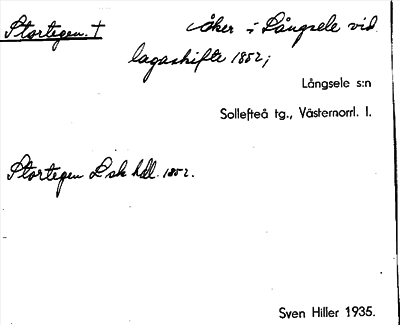 Stortegen. † åker i Långsele vid
lagaskifte 1852;
Långsele s:n
Sollefteå tg., Västernorrl. l.
Stortegen Lsk hdl. 1852.
Sven Hiller 1935.